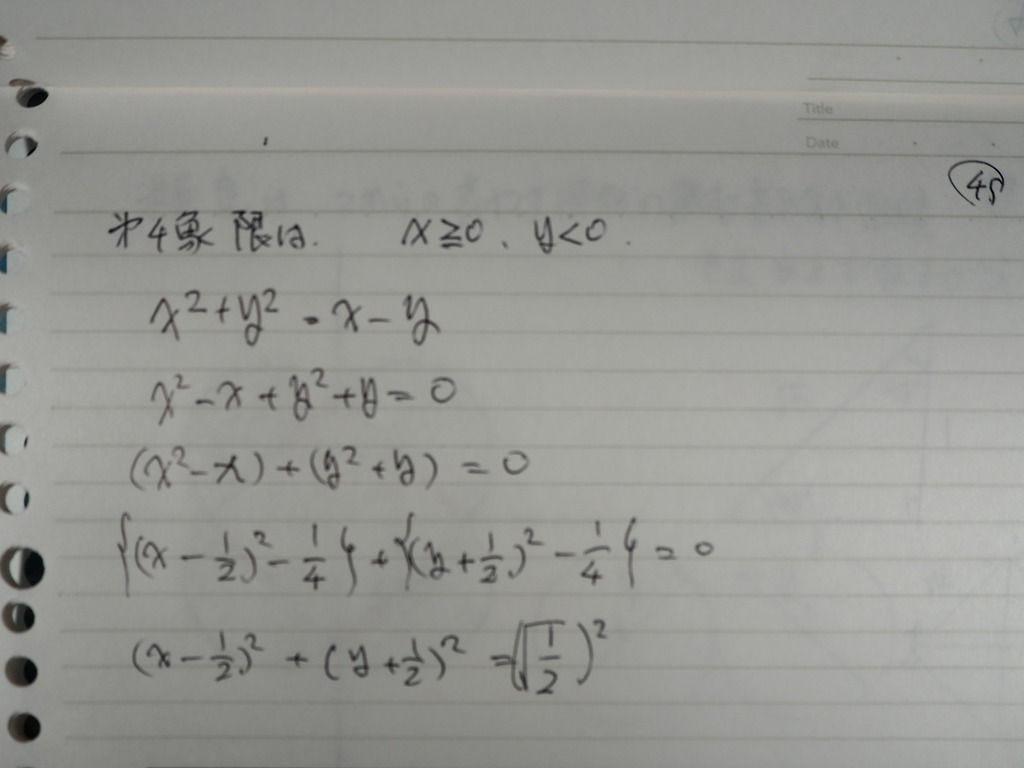 Title
Date
45
才4象限は. x≧0、y<0.
x²+y² = x-y
x²-x+y²+y=0
(x²-x)+(y²+y)=0
{(x-1/2)²-1/4}+{(y+1/2)²-1/4}=0
(x-1/2)²+(y+1/2)²=(√1/2)²